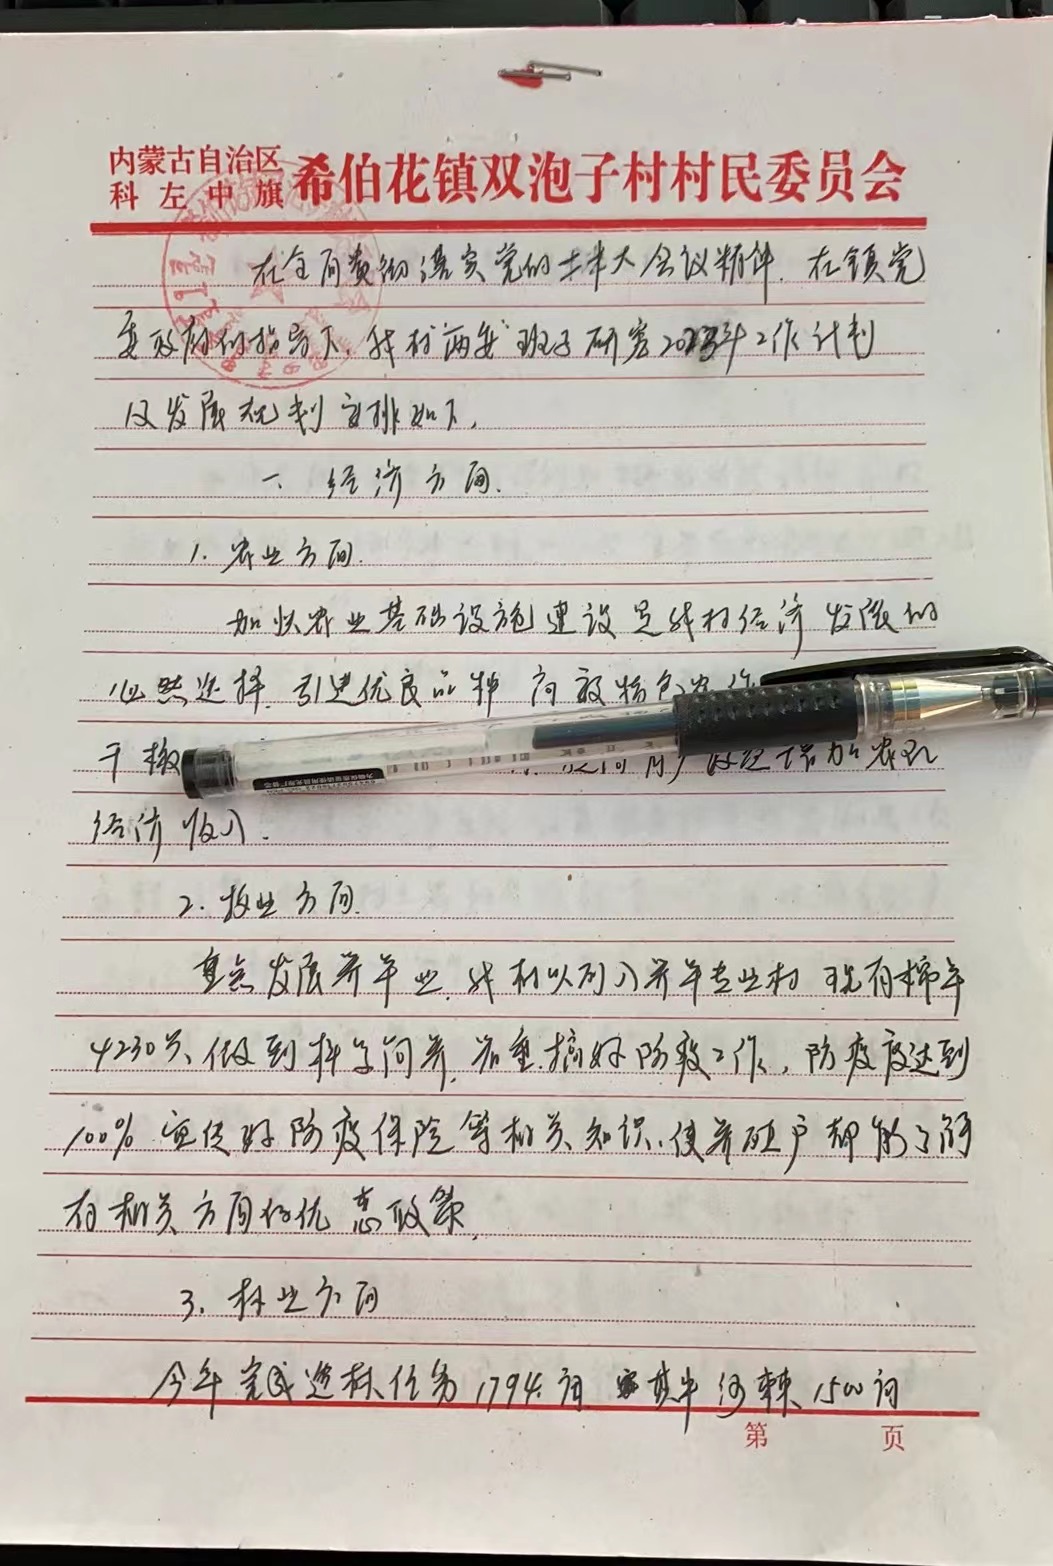 内蒙古自治区
科左中旗
希伯花镇双泡子村村民委员会
在全面贯彻落实党的二十大会议精神.在镇党
委政府的指导下,我村两委班子研究2023年工作计划
及发展规划安排如下,
一、经济方面.
1.农业方面.
加快农业基础设施建设是我村经济发展的
必然选择.引进优良品种 高效特色农作
干椒 增加农民
经济收入.
2.牧业方面.
重点发展养牛业,我村以列入养牛专业村 现有棉牛
4230头,做到科学饲养,着重搞好防疫工作,防疫度达到
100% 宣传好防疫保险等相关知识,使养殖户都能了解
有相关方面的优惠政策,
3.林业方面
今年完成造林任务1794亩 其中沙棘1500亩
第 页